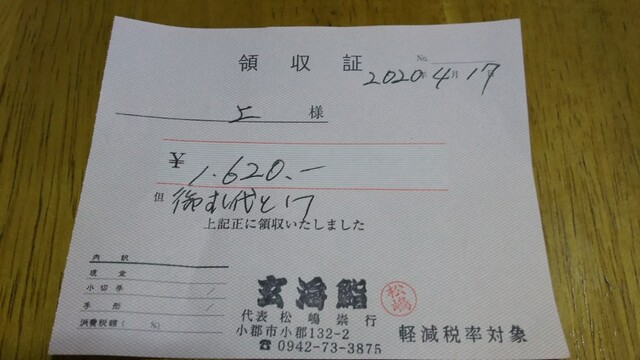 領収証
No.
2020年4月17日
上 様
¥1.620.-
但 御すし代として
上記正に領収いたしました
内訳
現金
小切手 /
手形 /
消費税額( %)
玄海鮨
松嶋
代表 松嶋崇行
小郡市小郡132-2
☎0942-73-3875
軽減税率対象